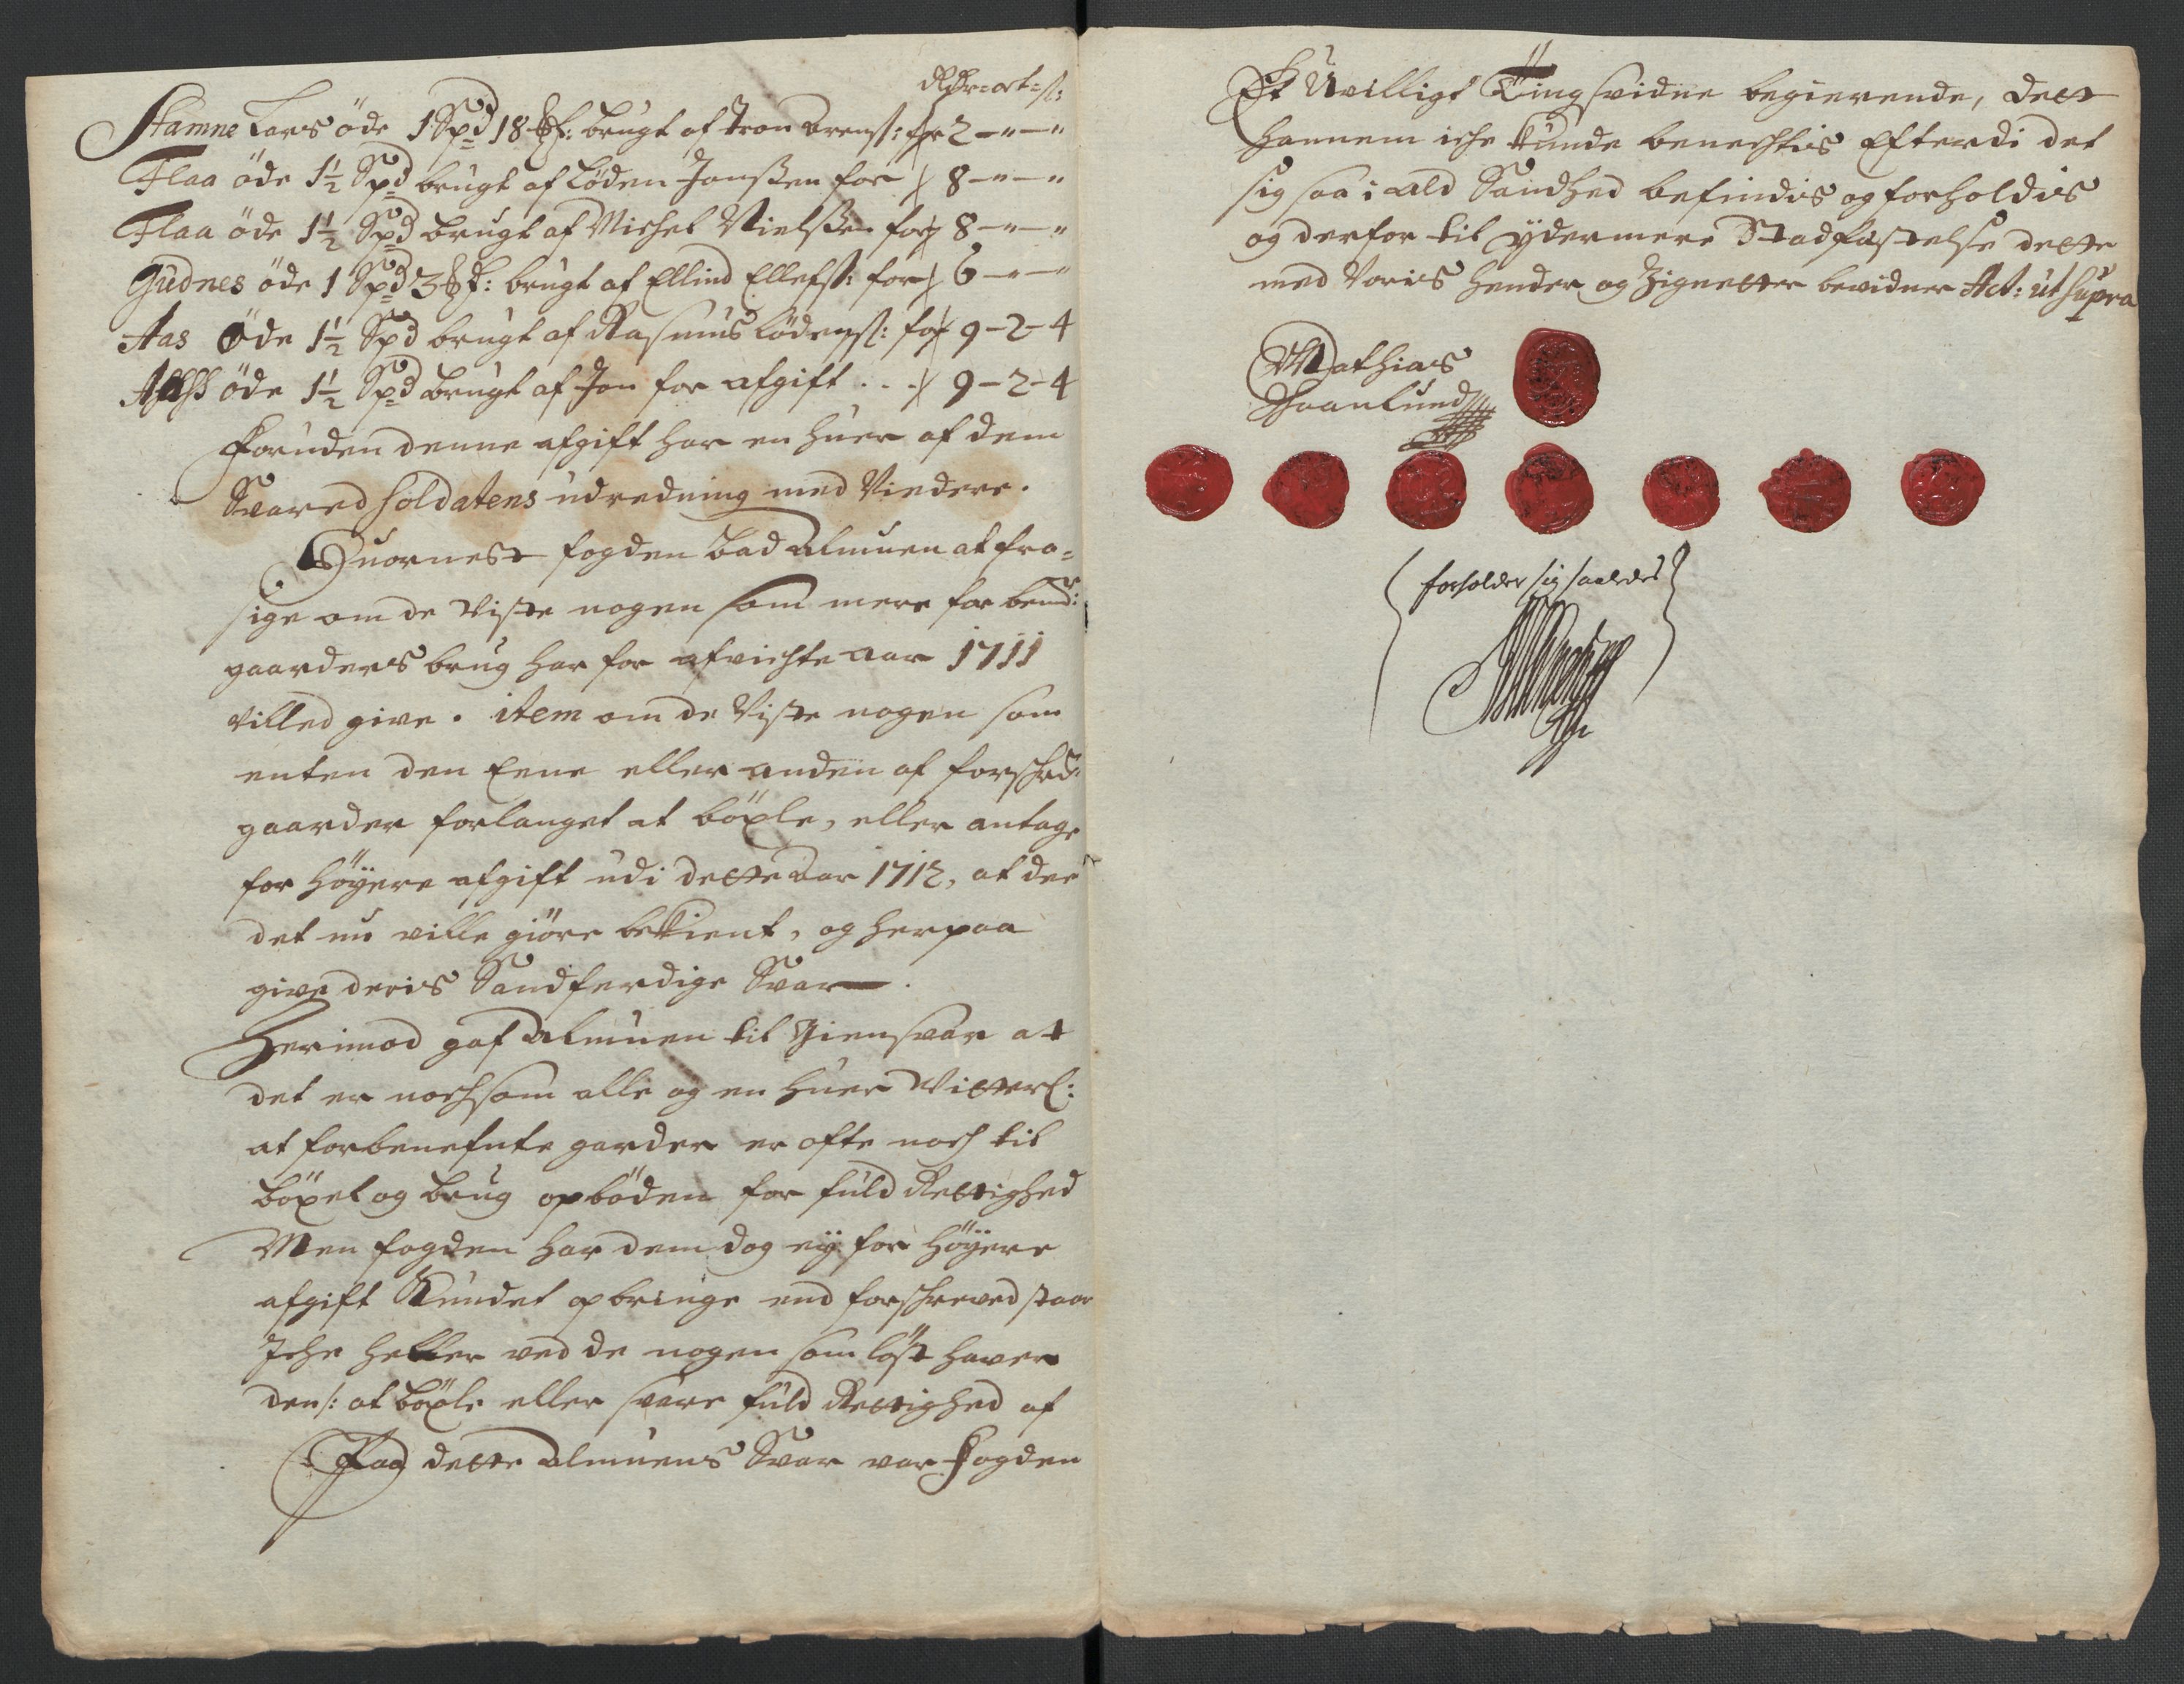 Rdr=ort=ß:
Stamne Lars öde 1 Spd 18 mk: brugt af Iron Arenß: for 2-"-"
Flaa öde 1½ Spd brugt af Löden Jonßen for 8-"-"
Flaa öde 1½ Spd brugt af Michel Nielßen for 8-"-"
Gudnes öde 1 Spd 3 mk: brugt af Ellind Ellefß: for 6-"-"
Aas öde 1½ Spd brugt af Rasmus Lödenß: for 9-2-4
öde 1½ Spd brugt af Jon for afgift .. 9-2-4
Foruden denne afgift har en huer af dem
Svared soldatens udredning med Videre.
Huornest fogden bad almuen at fra=
sige om de viste nogen som mere for bemdr:
gaarders brug har for afvichte aar 1711
villed give. item om de viste nogen som
enten den Eene eller anden af forschr:
gaarder forlanget at böxle, eller antage
for höyere afgift udi dette aar 1712, at de
det nu ville giöre bekient, og herpaa
give deris Sandferdige Svar.
Herimod gaf almuen til Giensvar at
det er nochsom alle og en huer Vitterl:
at forbenefnte garder er ofte noch til
böxel og brug opböden for fuld Rettighed
Men fogden har dem dog ey for höyere
afgift Kundet opbringe end forschreved staar
Iche heller ved de nogen som löst haver
den: at böxle eller svare fuld Rettighed af
Paa dette almuens Svar var Fogden
Et Uvilligt Tingsvidne begierende, dett
hannem iche kunde benechtis Efterdi det
sig saa i ald Sandhed befindis og forholdis
og derfor til ydermere Stadfæstelse dette
med Voris hender og Zignetter bevidner Act: ut supra
Mathias
Haanlund
forholder sig saaledes